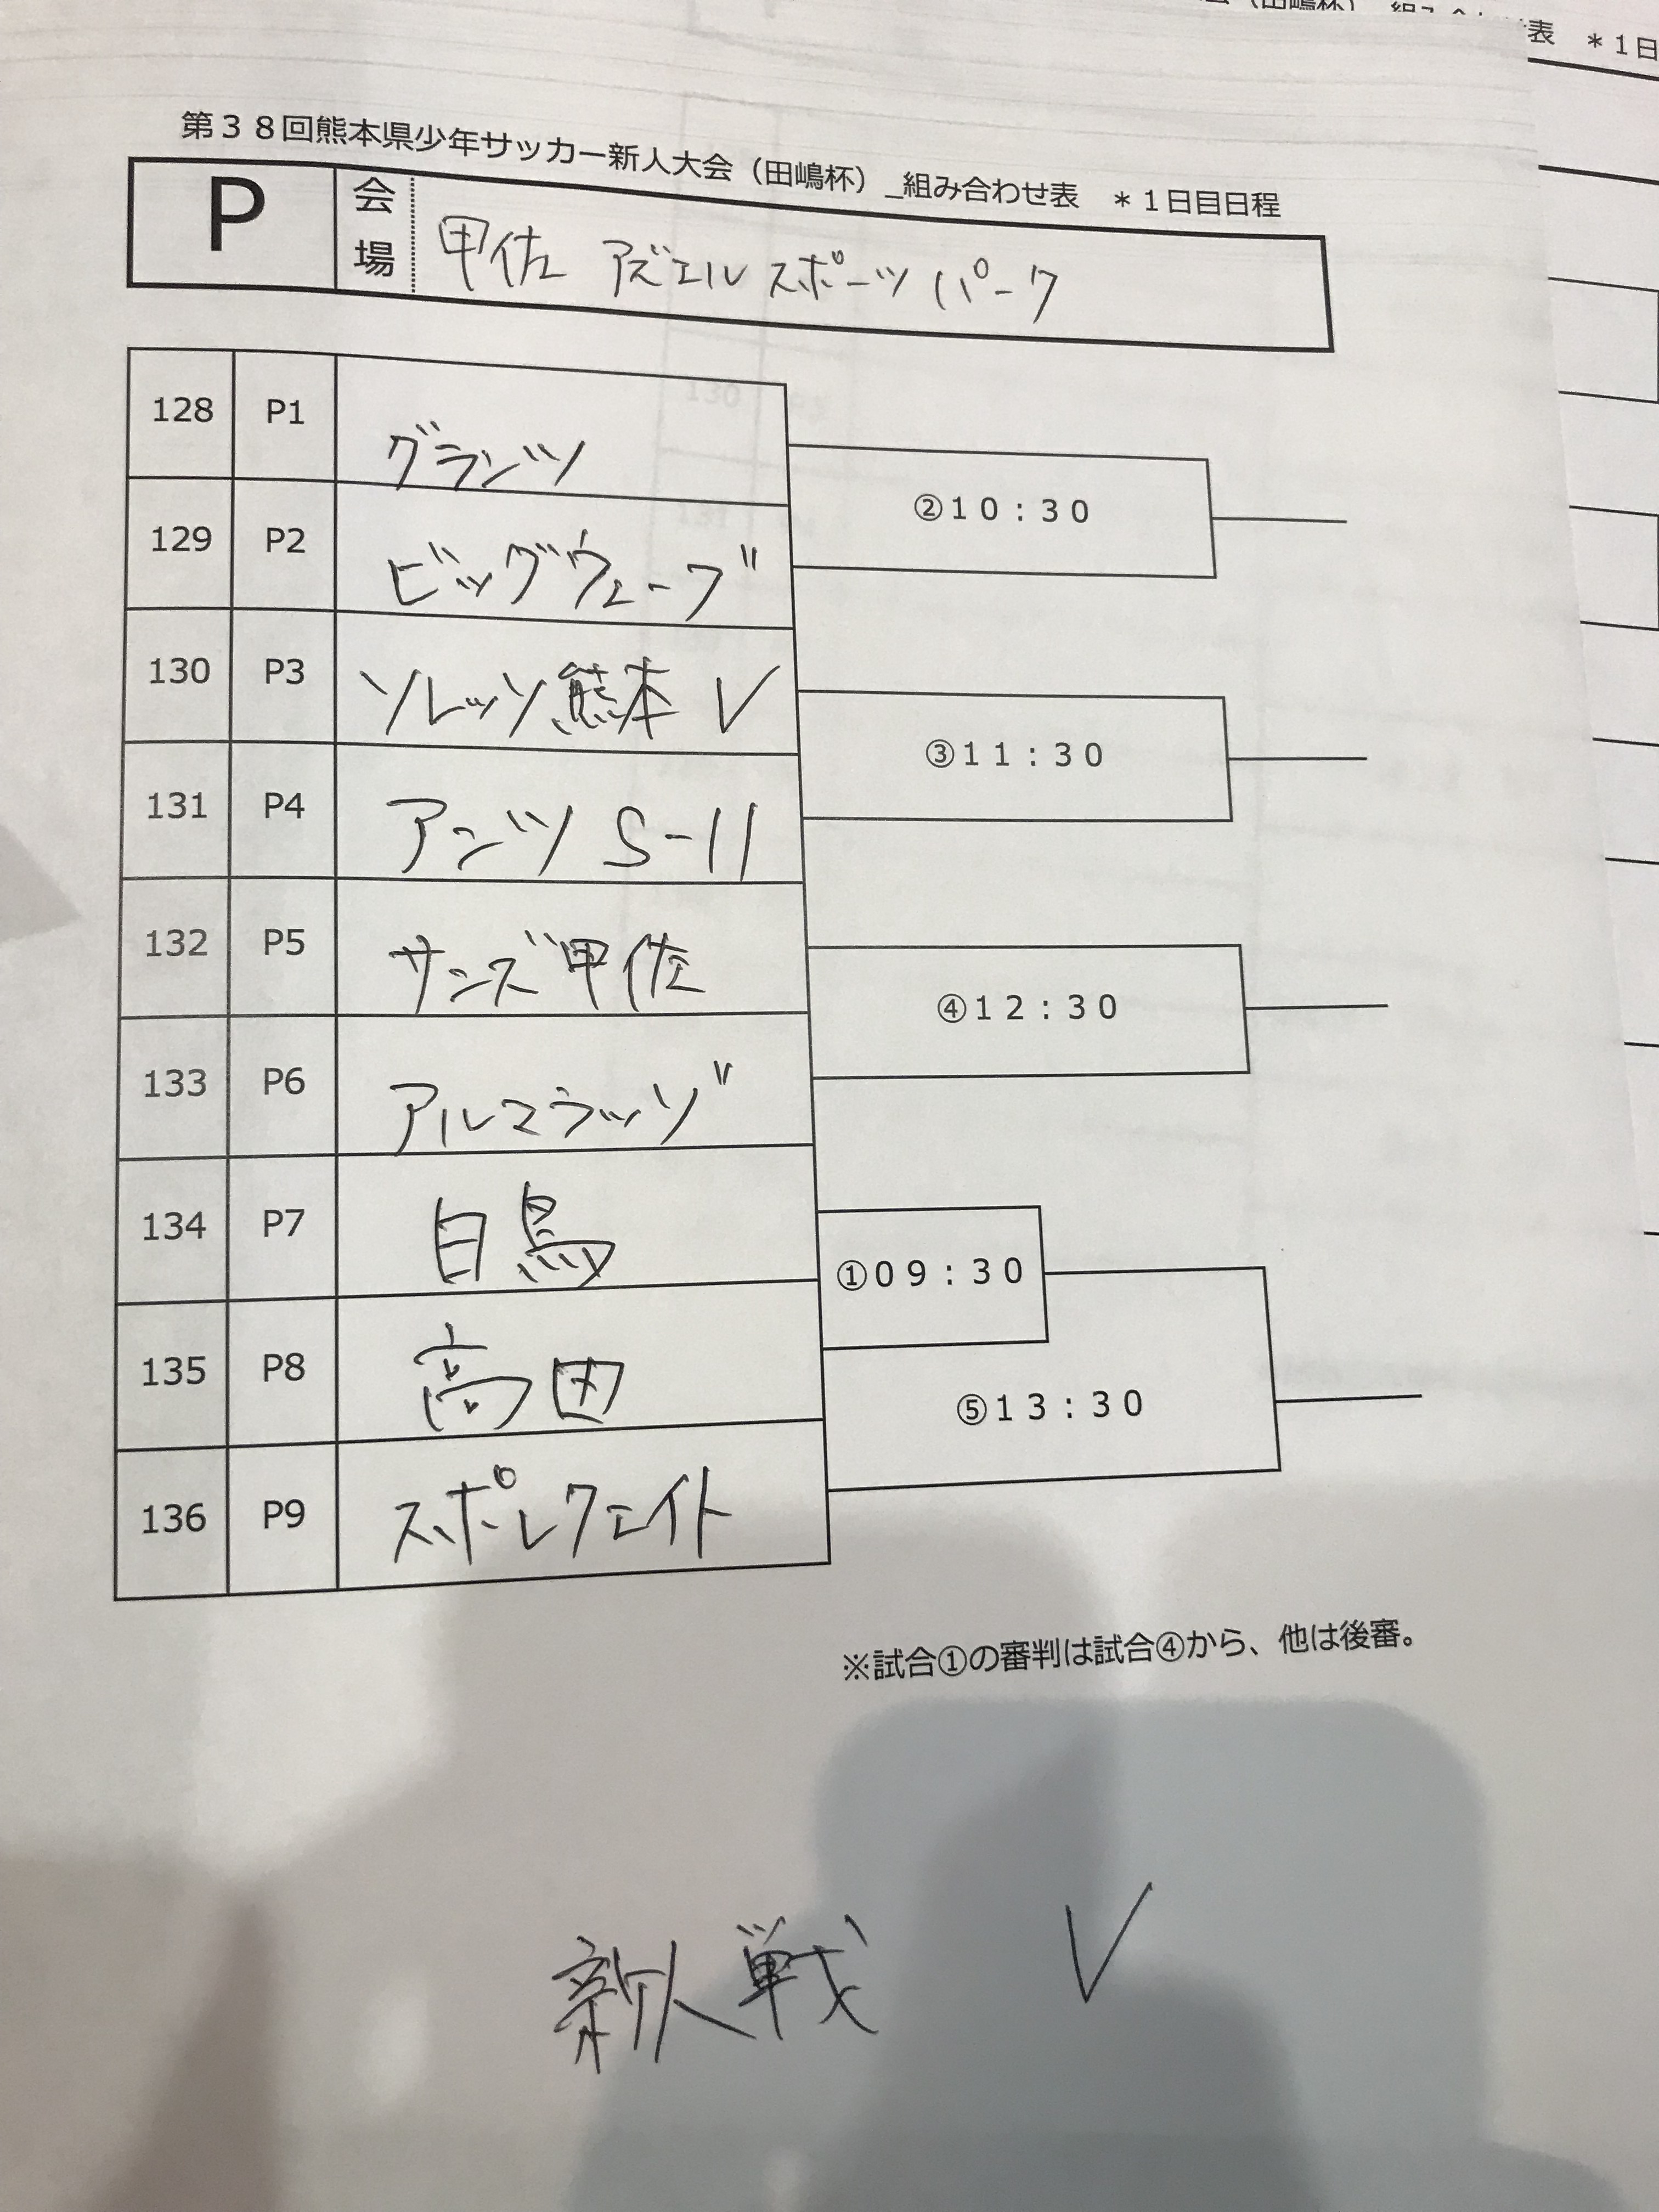 第３８回熊本県少年サッカー新人大会（田嶋杯）_組み合わせ表　＊１日目日程
P 会場 甲佐 アズエル スポーツ パーク
128 P1 グランツ
②１０：３０
129 P2 ビッグウェーブ
130 P3 ソレッソ熊本 V
③１１：３０
131 P4 アンツ S-11
132 P5 サンズ甲佐
④１２：３０
133 P6 アルマラッゾ
134 P7 白鳥
①０９：３０
135 P8 高田
⑤１３：３０
136 P9 スポレクエイト
※試合①の審判は試合④から、他は後審。
新人戦 V
表　＊１日